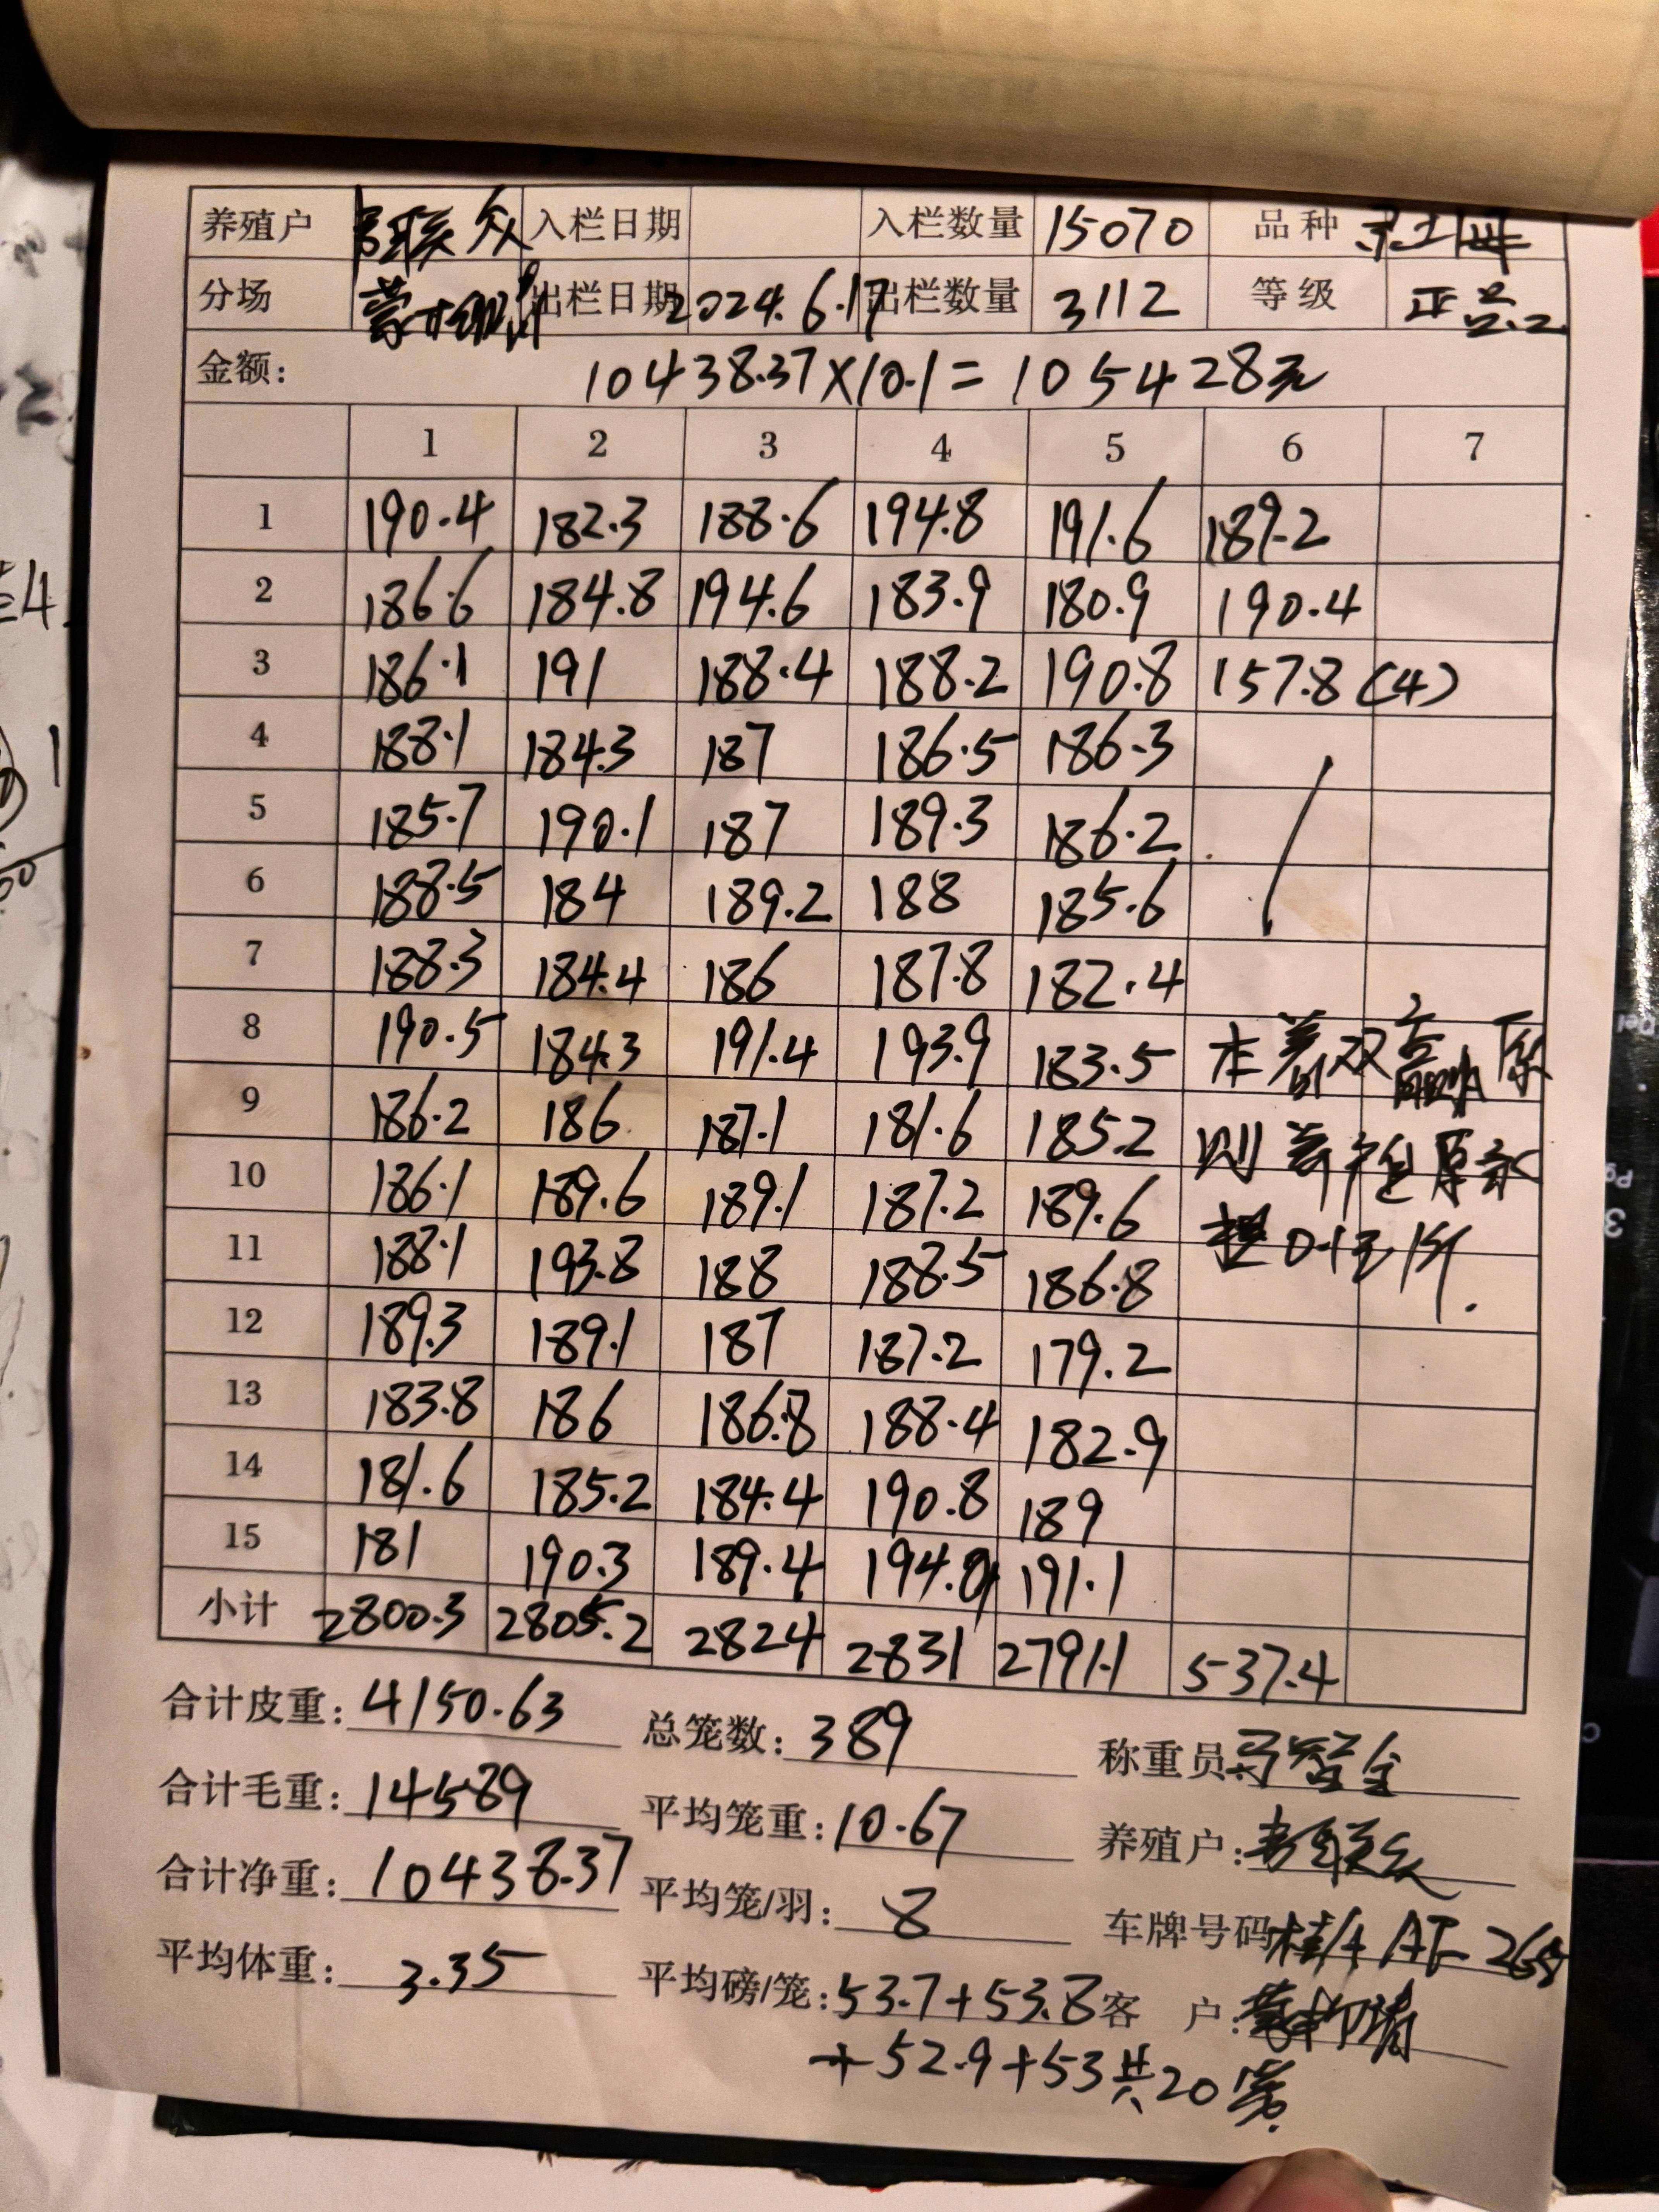 养殖户 韦联众 入栏日期 入栏数量 15070 品种
分场 出栏日期 2024.6.17 出栏数量 3112 等级 正品
金额: 10438.37×10.1=105428元
1 2 3 4 5 6 7
1 190.4 182.3 188.6 194.8 191.6 189.2
2 186.6 184.8 194.6 183.9 180.9 190.4
3 186.1 191 188.4 188.2 190.8 157.8(4)
4 188.1 184.3 187 186.5 186.3
5 185.7 190.1 187 189.3 186.2
6 188.5 184 189.2 188 185.6
7 188.3 184.4 186 187.8 182.4
8 190.5 184.3 191.4 193.9 183.5 本着双赢原
9 186.2 186 187.1 181.6 185.2 则
10 186.1 189.6 189.1 187.2 189.6
11 188.1 193.8 188 188.5 186.8
12 189.3 189.1 187 187.2 179.2
13 183.8 186 186.8 188.4 182.9
14 181.6 185.2 184.4 190.8 189
15 181 190.3 189.4 194.9 191.1
小计 2800.3 2805.2 2824 2831 2791.1 537.4
合计皮重: 4150.63 总笼数: 389 称重员
合计毛重: 14589 平均笼重: 10.67 养殖户: 韦联众
合计净重: 10438.37 平均笼/羽: 8 车牌号码 桂A
平均体重: 3.35 平均磅/笼: 53.7+53.8 客 户:
+52.9+53共20笼